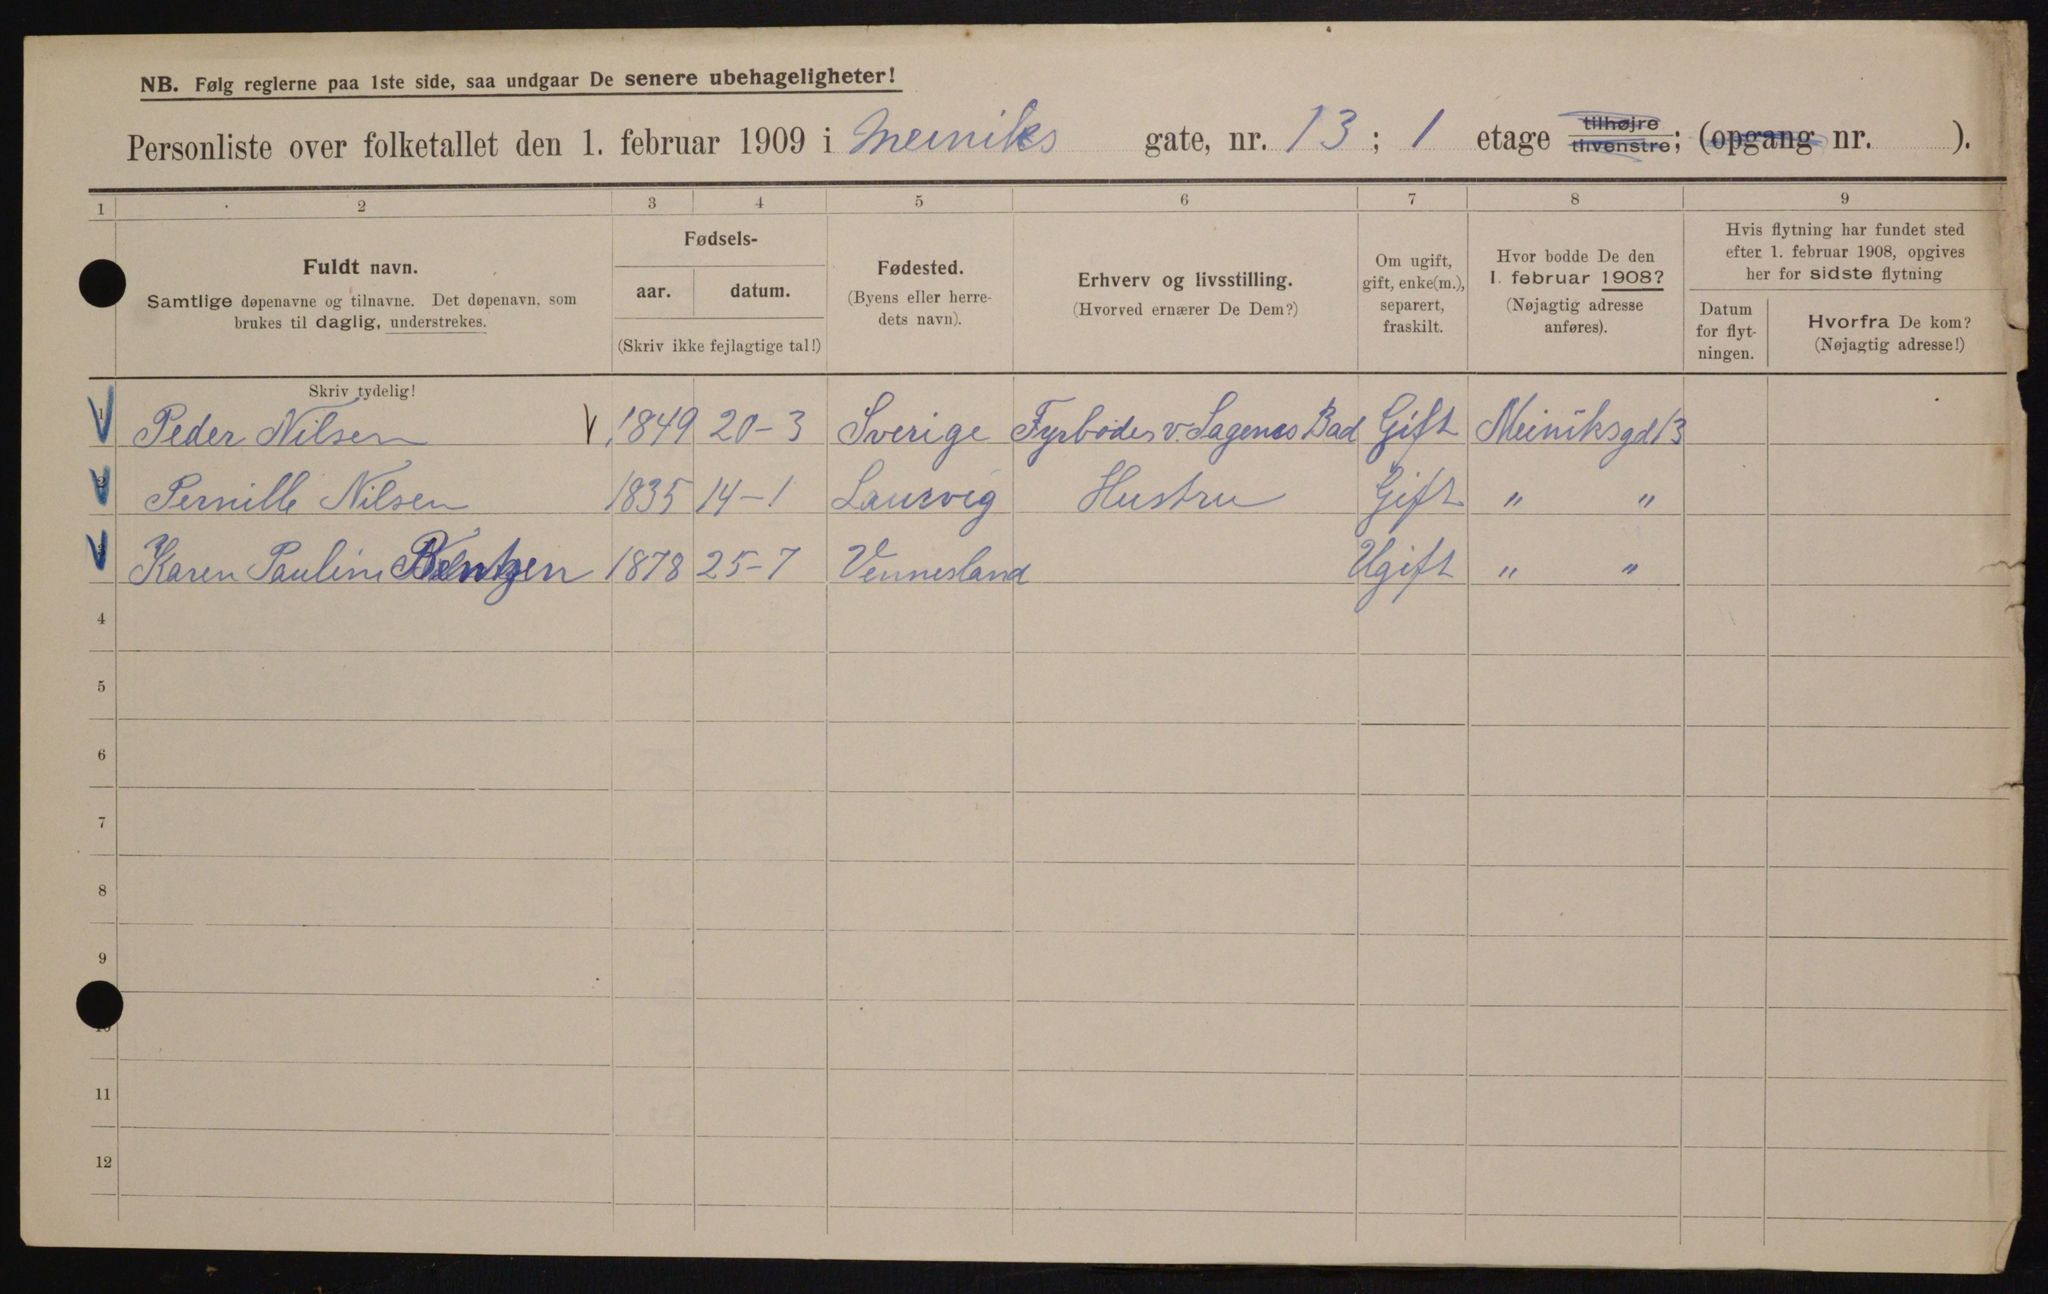 NB. Følg reglerne paa 1ste side, saa undgaar De senere ubehageligheter!
Personliste over folketallet den 1. februar 1909 i Meiniks gate, nr. 13 ; 1 etage tilhøjre tilvenstre; (opgang nr. ).
1 2 3 4 5 6 7 8 9
Fuldt navn.
Samtlige døpenavne og tilnavne. Det døpenavn, som
brukes til daglig, understrekes.
Skriv tydelig!
Fødsels-
aar. datum.
(Skriv ikke fejlagtige tal!)
Fødested.
(Byens eller herre-
dets navn).
Erhverv og livsstilling.
(Hvorved ernærer De Dem?)
Om ugift,
gift, enke(m.),
separert,
fraskilt.
Hvor bodde De den
1. februar 1908?
(Nøjagtig adresse
anføres).
Hvis flytning har fundet sted
efter 1. februar 1908, opgives
her for sidste flytning
Datum
for flyt-
ningen.
Hvorfra De kom?
(Nøjagtig adresse!)
1 Peder Nilsen V 1849 20-3 Sverige Fyrbøder v. Sagenes Bad Gift Meiniksgd 13
2 Pernille Nilsen 1835 14-1 Laurvig Hustru Gift " "
3 Karen Pauline Bentzen 1878 25-7 Vennesland Ugift " "
4
5
6
7
8
9
10
11
12